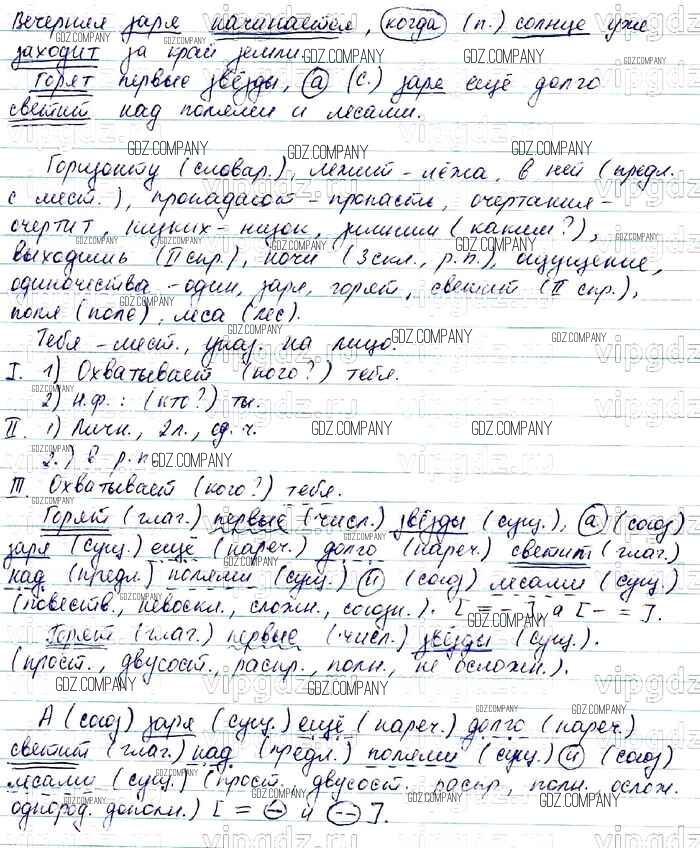 Вечерняя заря начинается, когда (п.) солнце уже
заходит за край земли.
Горят первые звёзды, а (с.) заря ещё долго
светит над полями и лесами.
Горизонту (словар.), лежит - лёжа, в ней (предл.
с мест.), пропадают - пропасть, очертания -
очертит, низких - низок, зимними (какими?),
выходишь (II спр.), ночи (3 скл., р.п.), ощущение,
одиночества - один, заря, горят, светит (II спр.),
поля (поле), леса (лес).
Тебя - мест., указ. на лицо.
I. 1) Охватывает (кого?) тебя.
2) н.ф.: (кто?) ты.
II. 1) Личн., 2 л., ед. ч.
2.) в р.п.
III. Охватывает (кого?) тебя.
Горят (глаг.) первые (числ.) звёзды (сущ.), а (союз)
заря (сущ.) ещё (нареч.) долго (нареч.) светит (глаг.)
над (предл.) полями (сущ.) и (союз) лесами (сущ.)
(повеств., невоскл., сложн., союзн.). [= -], а [- =].
Горят (глаг.) первые (числ.) звёзды (сущ.).
(прост., двусост., распр., полн., не осложн.).
А (союз) заря (сущ.) ещё (нареч.) долго (нареч.)
светит (глаг.) над (предл.) полями (сущ.) и (союз)
лесами (сущ.) (прост. двусост. распр., полн. ослож.
однород. дополн.) [= и ].
GDZ.COMPANY
vipgdz.ru